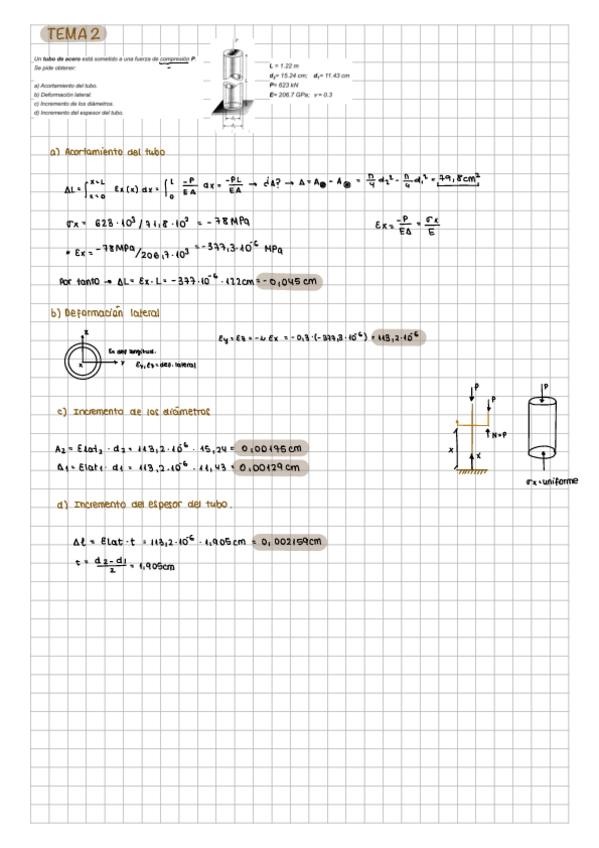 TEMA 2
Un tubo de acero está sometido a una fuerza de compresión P.
Se pide obtener:
a) Acortamiento del tubo.
b) Deformación lateral.
c) Incremento de los diámetros.
d) Incremento del espesor del tubo.
L = 1.22 m
d₂= 15.24 cm; d₁= 11.43 cm
P= 623 kN
E= 206.7 GPa; ν= 0.3
a) Acortamiento del tubo
ΔL = ∫ₓ₌₀ˣ⁼ᴸ Ɛx(x) dx = ∫₀ᴸ -P/EA dx = -PL/EA → ¿A? → A = A - A = π/4 d₂² - π/4 d₁² = 79,8 cm²
σx = 623·10³/79,8·10² = -78 MPa
Ɛx = -P/EA = σx/E
* Ɛx = -78MPa/206,7·10³ = -377,3·10⁻⁶ MPa
Por tanto → ΔL = Ɛx·L = -377·10⁻⁶ · 122cm = -0,045 cm
b) Deformación lateral
z
Ɛx def longitud.
x
y
Ɛy, Ɛz = def. lateral
Ɛy = Ɛz = -ν Ɛx = -0,3·(-377,3·10⁻⁶) = 113,2·10⁻⁶
c) Incremento de los diámetros
Δ₂ = Ɛlat₂ · d₂ = 113,2·10⁻⁶ · 15,24 = 0,00175 cm
Δ₁ = Ɛlat₁ · d₁ = 113,2·10⁻⁶ · 11,43 = 0,00129 cm
P
P
P
N=P
x
x
σx = uniforme
d) Incremento del espesor del tubo.
Δt = Ɛlat · t = 113,2·10⁻⁶ · 1,905cm = 0,002159cm
t = d₂-d₁/2 = 1,905cm